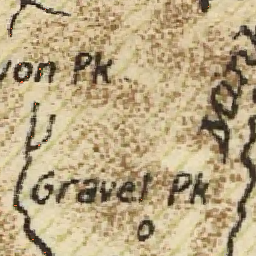 von Pk
Gravel Pk